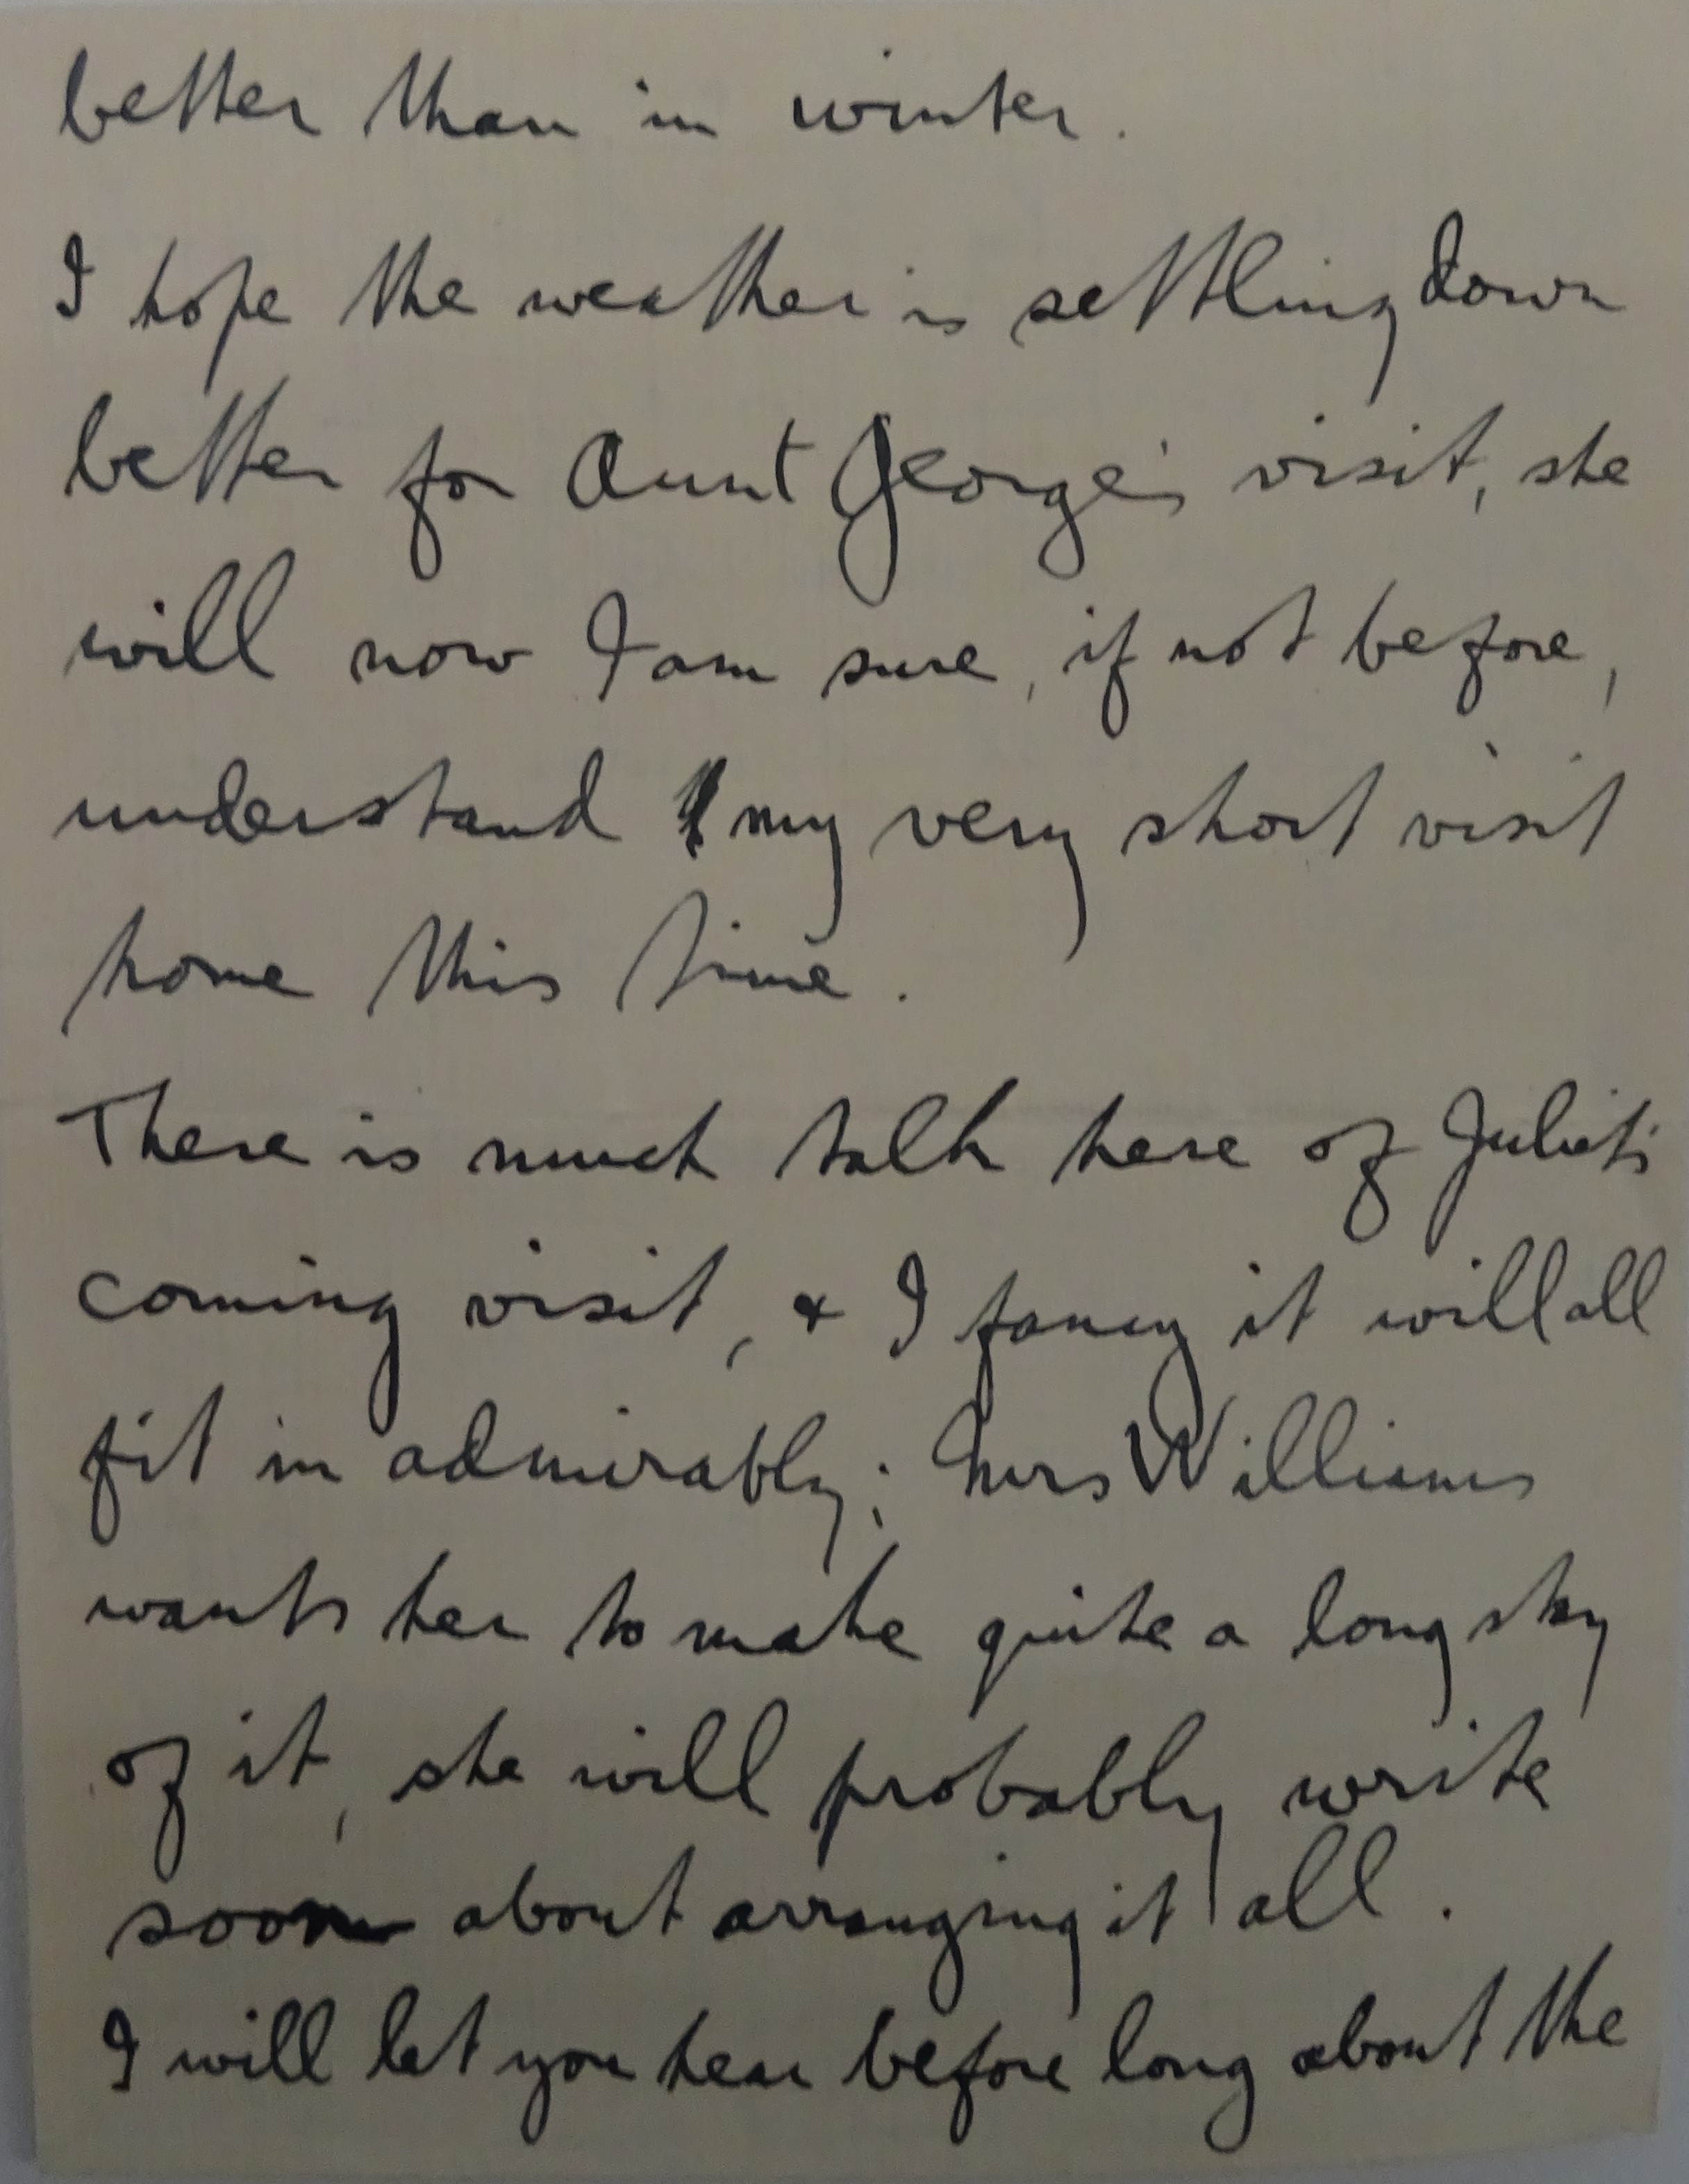 better than in winter.
I hope the weather is settling down
better for Aunt George's visit, she
will now I am sure, if not before,
understand my very short visit
home this time.
There is much talk here of Juliet's
coming visit, & I fancy it will all
fit in admirably; Mrs Williams
wants her to make quite a long stay
of it, she will probably write
soon about arranging it all.
I will let you hear before long about the